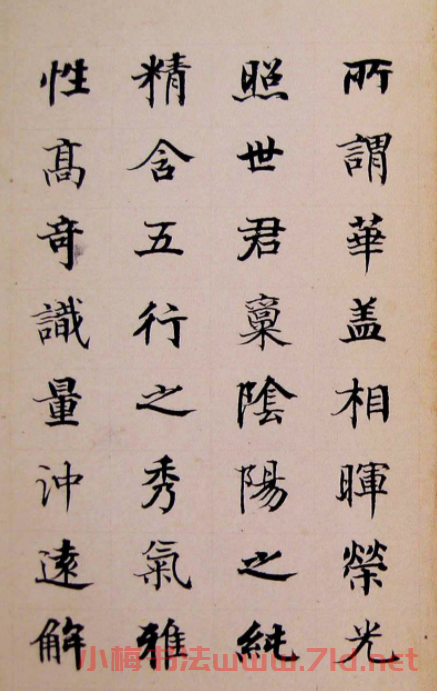 所謂華盖相暉榮光
照世君稟陰陽之純
精含五行之秀氣雅
性高奇識量沖遠解
小梅书法www.7ld.net